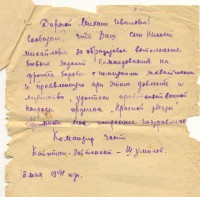 Дорогой Михаил Иванович!
Сообщаю, что Ваш сын Николай
Михайлович за образцовое выполнение
боевого задания командования на
фронте борьбы с немецкими захватчиками
и проявленную при этом доблесть и
мужество, удостоен правительственной
награды ордена "Красной звезды"
Примите мое искреннее поздравление
Командир части
Капитан-Лейтенант - Шуманов.
3 мая 194